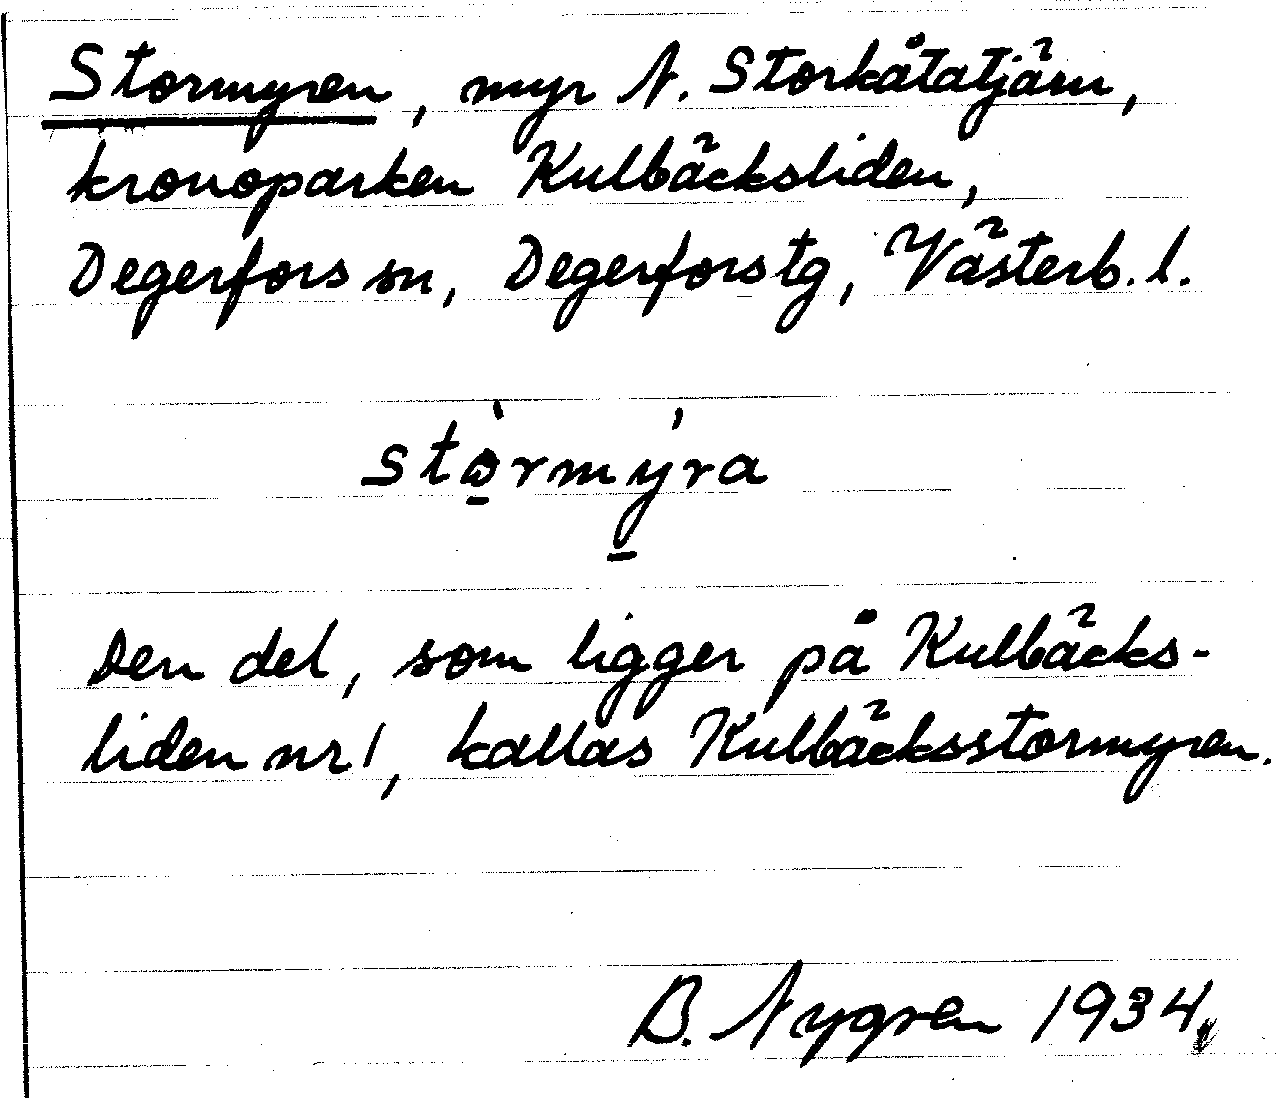 Stormyren, myr N. Storkåtatjärn,
kronoparken Kulbäcksliden,
Degerfors sn, Degerfors tg, Västerb. l.
stò̱rmý̱ra
Den del, som ligger på Kulbäcks-
liden nr 1, kallas Kulbäcksstormyren.
B. Nygren 1934.